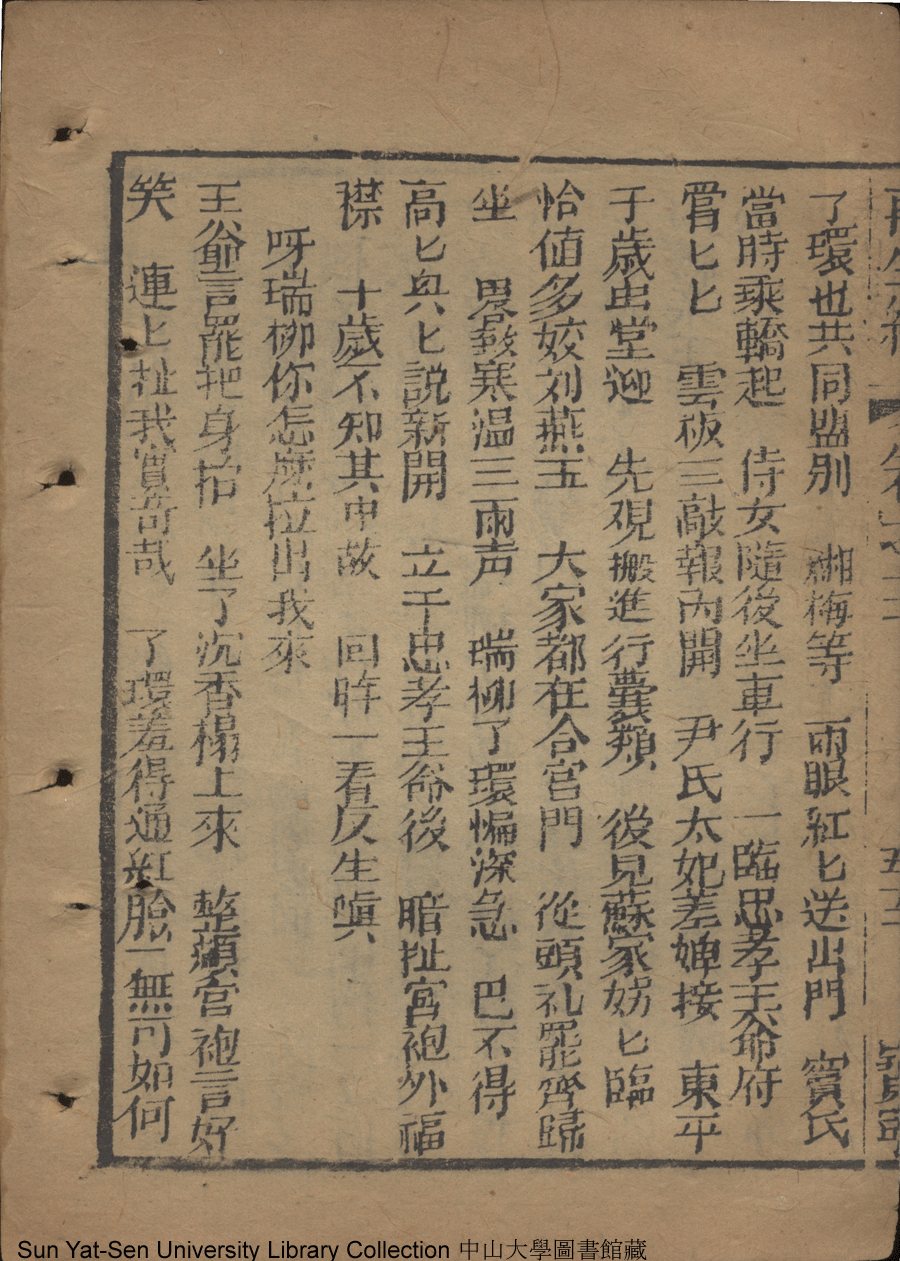 了環也共同盟别　湘梅等　兩眼紅匕送出門　竇氏
當時乘轎起　侍女隨後坐車行　一臨忠孝王爺府
匕匕　雲板三敲報內開　尹氏太妃差婢接　東平
于歲出堂迎　先观搬進行囊類　後見蘇家娚匕臨
恰値多姣刘燕玉　大家都在合宫門　從頭礼罷齊歸
坐　畧敍寒温三兩声　瑞柳了環惼深急　巴不得
高匕與匕説新開　立于忠孝王爺後　暗扯宫袍外福
襟　十歲不知其中故　回眸一看反生嗔
呀瑞柳你怎麽拉出我來
王爺言罷把身抬　坐了沉香榻上來　整頓宫袍言好
笑　連上扯我實奇哉　了環羞得通紅臉　無可如何
Sun Yat-Sen University Library Collection 中山大學圖書館藏